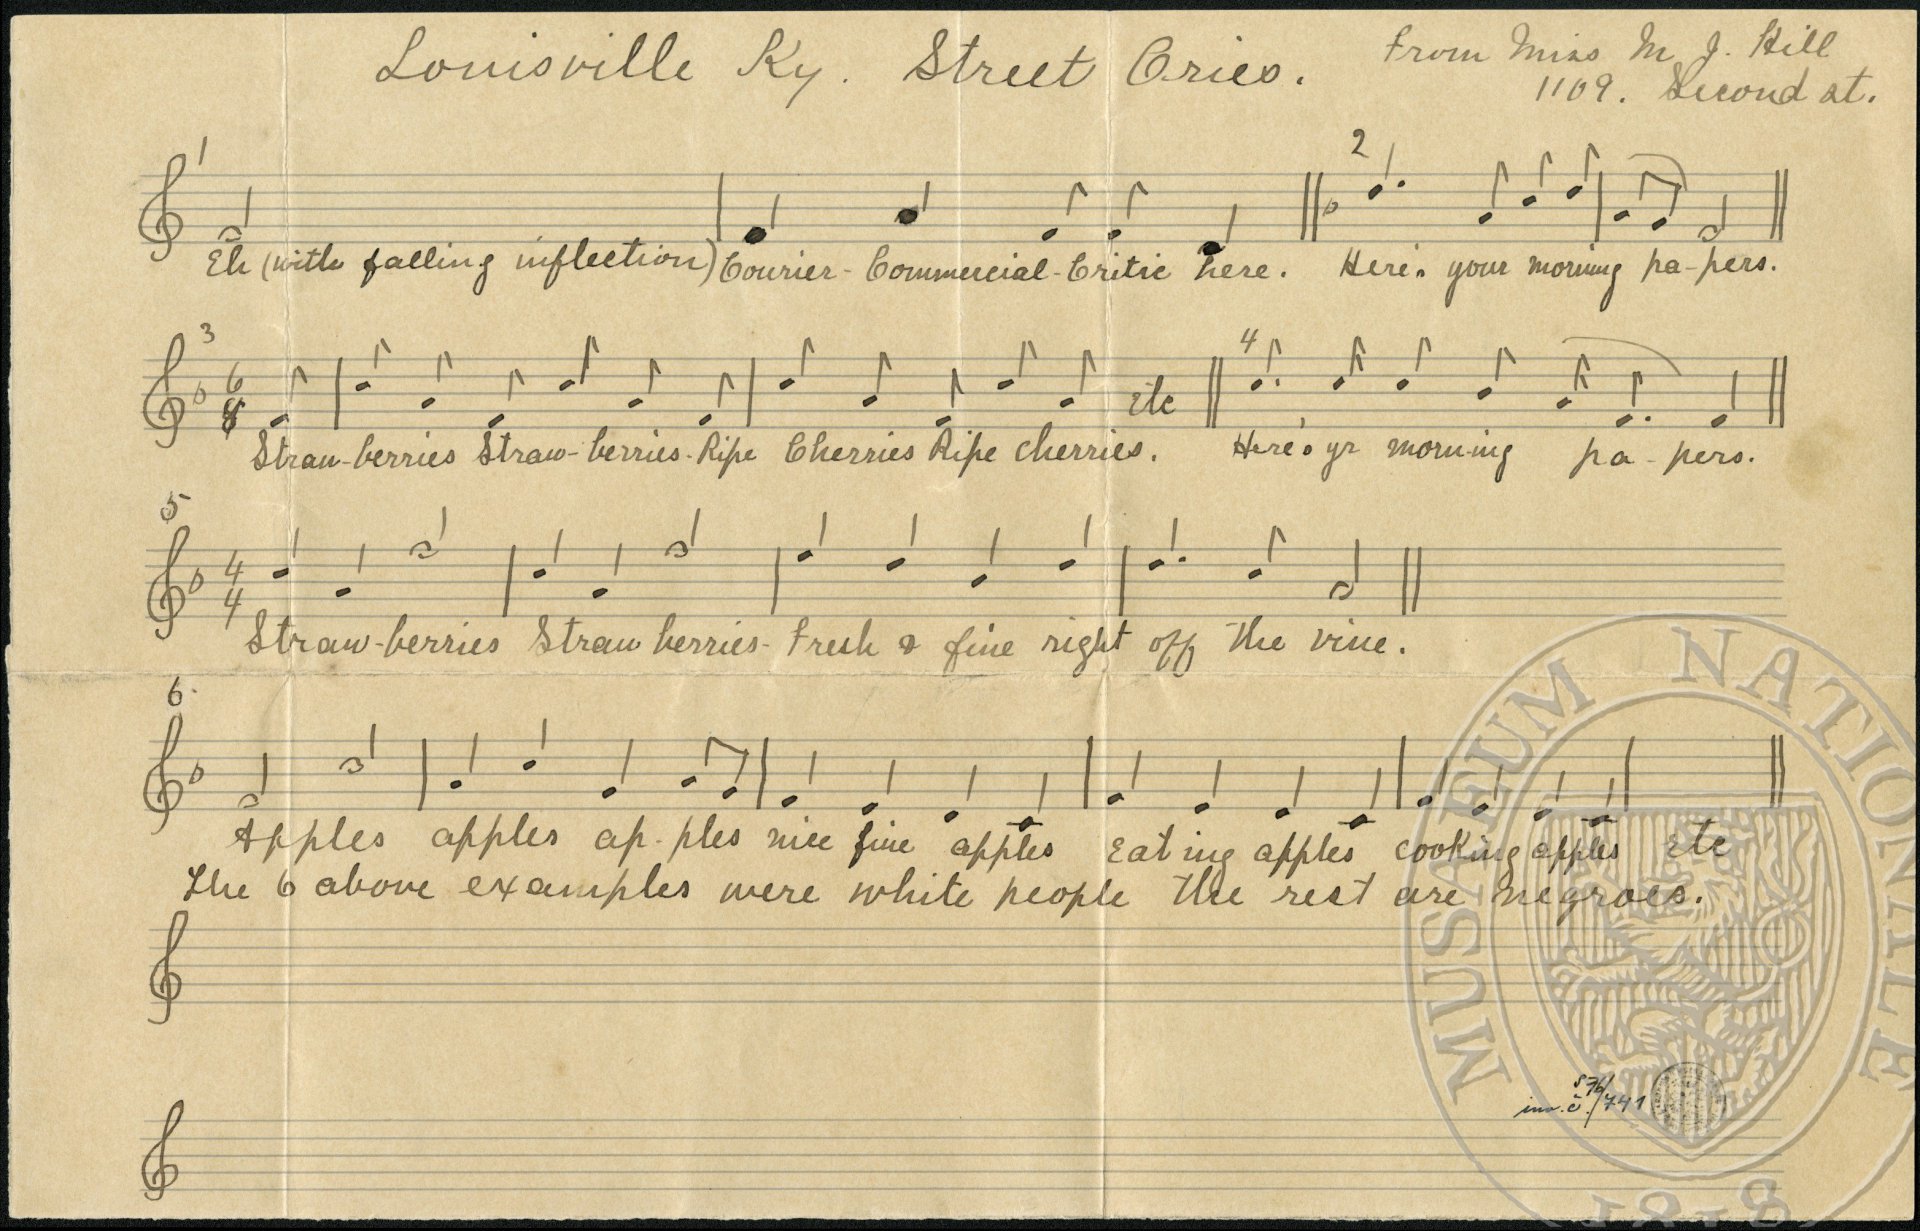 Louisville Ky. Street Cries.
From Miss M J. Hill
1109. Second st.
1
2
Eh (with falling inflection) Courier - Commercial - Critic here. Here's your morning pa-pers.
3
4
6
8
Etc
Straw-berries Straw-berries. Ripe Cherries Ripe cherries. Here's yr morn-ing pa-pers.
5
4
4
Straw-berries Straw berries - Fresh & fine right off the vine.
6.
Apples apples ap-ples nice fine apples Eating apples cooking apples Etc
The 6 above examples were white people the rest are negroes.
MUSAEUM NATIONALE
1818
S 76/741
inv. č.